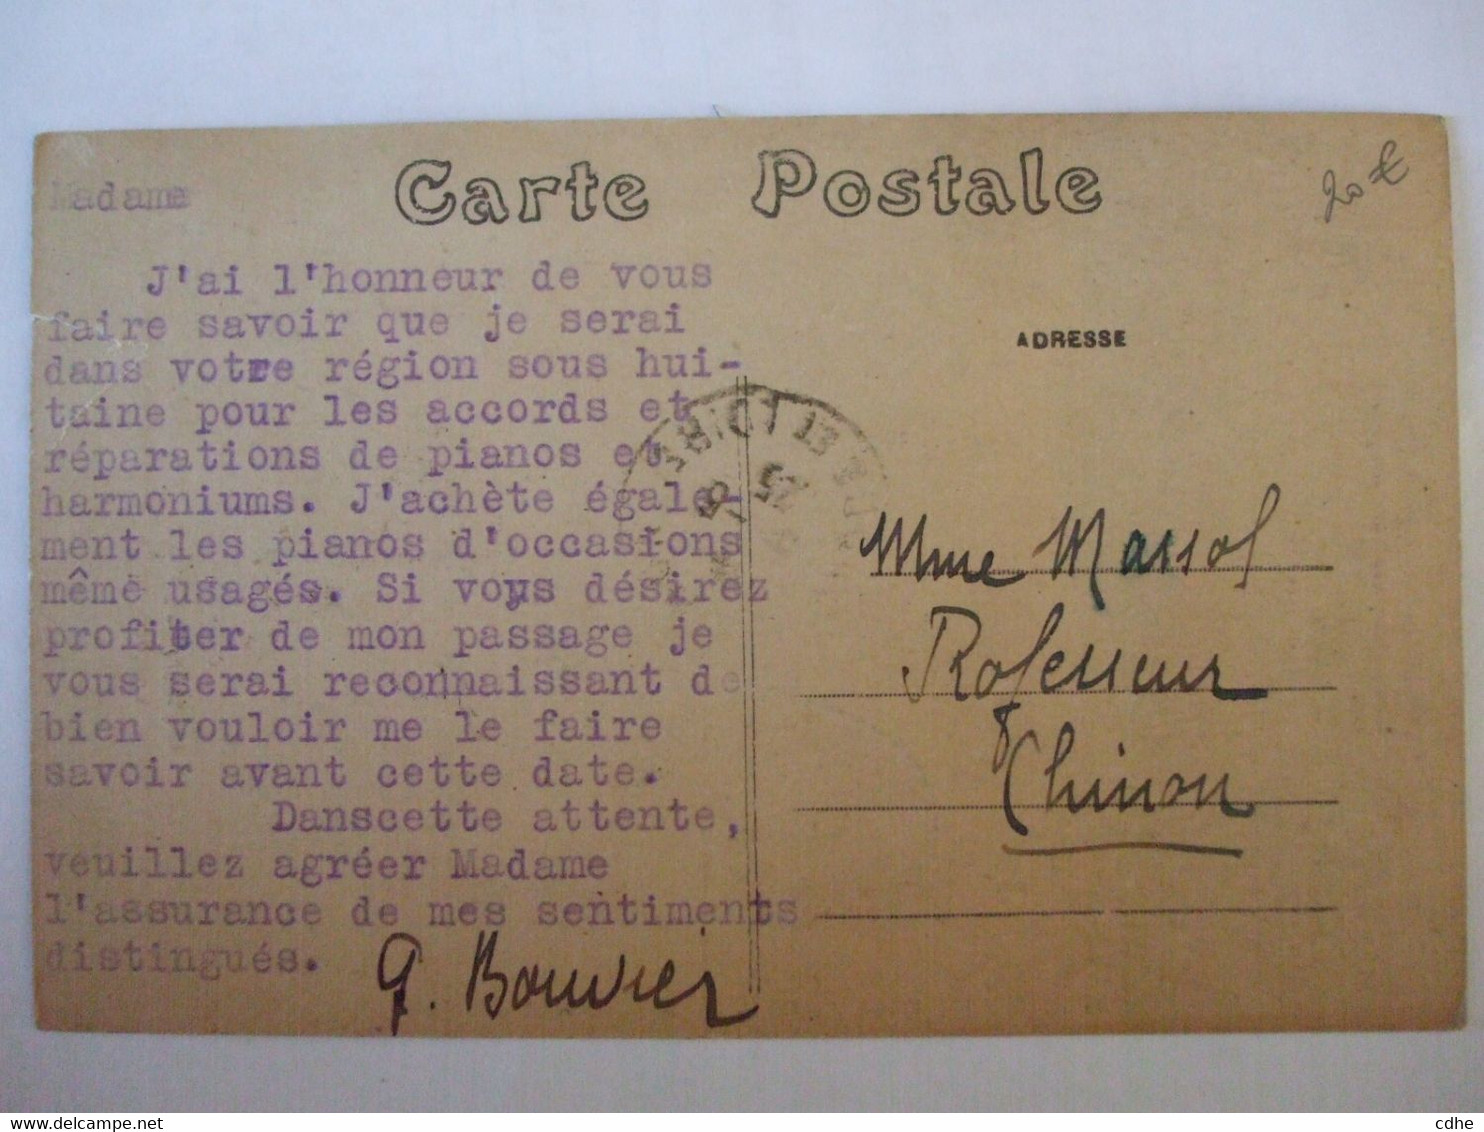 Carte Postale
20 €
Madame
J'ai l'honneur de vous
faire savoir que je serai
dans votre région sous hui-
taine pour les accords et
réparations de pianos et
harmoniums. J'achète égale-
ment les pianos d'occasions
même usagés. Si vous désirez
profiter de mon passage je
vous serai reconnaissant de
bien vouloir me le faire
savoir avant cette date.
Danscette attente,
veuillez agréer Madame
l'assurance de mes sentiments
distingués.
ADRESSE
Mme Massol
Professeur
Chinon
LOIRE
25
cdhe